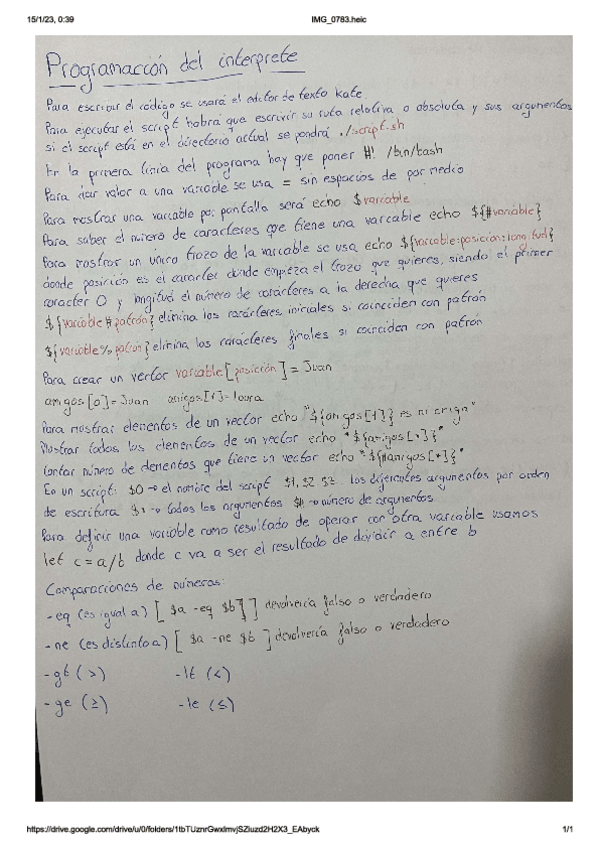 15/1/23, 0:39
IMG_0783.heic
Programación del interprete
Para escribir el código se usará el editor de texto kate
Para ejecutar el script habrá que escribir su ruta relativa o absoluta y sus argumentos
si el script está en el directorio actual se pondrá ./script.sh
En la primera linia del programa hay que poner #! /bin/bash
Para dar valor a una variable se usa = sin espacios de por medio
Para mostrar una variable por pantalla será echo $variable
Para saber el número de caracteres que tiene una variable echo ${#variable}
Para mostrar un único trozo de la variable se usa echo ${variable:posición:longitud}
donde posición es el caracter donde empieza el trozo que quieres, siendo el primer
caracter 0 y longitud el número de carácteres a la derecha que quieres
${variable#patrón} elimina los carácteres iniciales si coinciden con patrón
${variable%patron} elimina los carácteres finales si coinciden con patrón
Para crear un vector variable[posición]=Juan
amigos[0]=Juan amigos[1]=laura
Para mostrar elementos de un vector echo "${amigos[1]} es mi amigo"
Mostrar todos los elementos de un vector echo "${amigos[*]}"
Contar número de elementos que tiene un vector echo "${#amigos[*]}"
En un script: $0 → el nombre del script $1, $2 los diferentes argumentos por orden
de escritura → todos los argumentos $# → número de argumentos
Para definir una variable como resultado de operar con otra variable usamos
let c=a/b donde c va a ser el resultado de dividir a entre b
Comparaciones de números:
-eq (es igual a) [ $a -eq $b ] ] devolvería falso o verdadero
-ne (es distinto a) [ $a -ne $b ] devolvería falso o verdadero
-gt (>) -lt (<)
-ge (≥) -le (≤)
https://drive.google.com/drive/u/0/folders/1tbTUznrGwxlmvjSZiuzd2H2X3_EAbyck
1/1